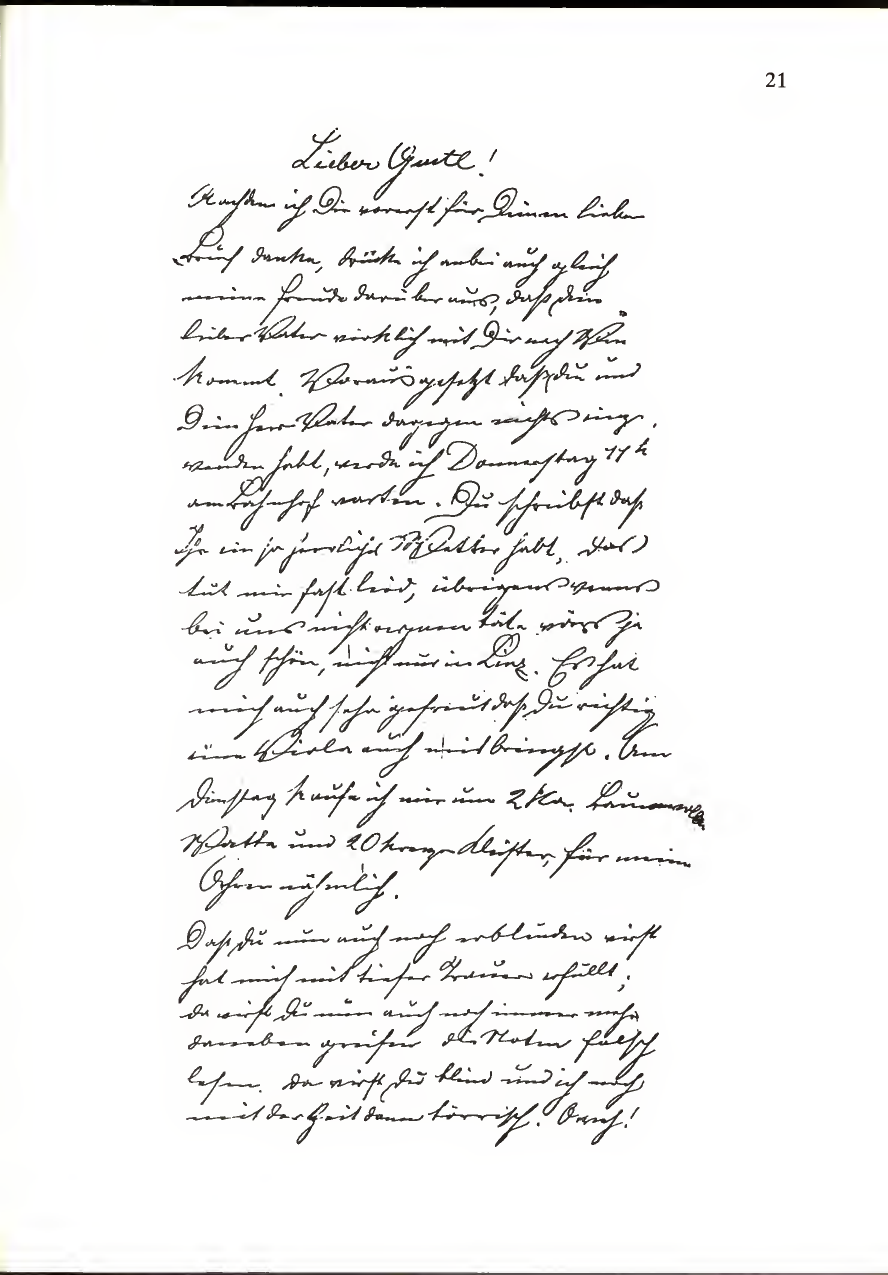 21
Lieber Gustl!
Nachdem ich Dir vorerst für Deinen lieben
Brief danke, drücke ich anbei auch gleich
meine Freude darüber aus, daß dein
lieber Vater wirklich mit Dir nach Wien
kommt. Vorausgesetzt daß du und
Dein Herr Vater dagegen nichts einzu-
wenden habt, werde ich Donnerstag 11h
am Bahnhof warten. Du schreibst das
Ihr ein so herrliches Wetter habt, das
tut mir fast leid, übrigens wenns
bei uns nicht regnen täte wärs ja
auch schön, nicht nur in Linz. Es hat
mich auch sehr gefreut daß Du richtig
eine Viola auch mitbringst. Am
Dienstag kaufe ich mir um 2 Kr. Baumwolle
Watte und 20 Kreuzer Kleister, für meine
Ohren nähmlich.
Daß Du nun auch noch erblinden wirst
hat mich mit tiefer Trauer erfüllt;
da wirst Du nun auch noch immer mehr
daneben greifen die Noten falsch
lesen. da wirst Du blind und ich noch
mit der Zeit dann törrisch. Oweh!